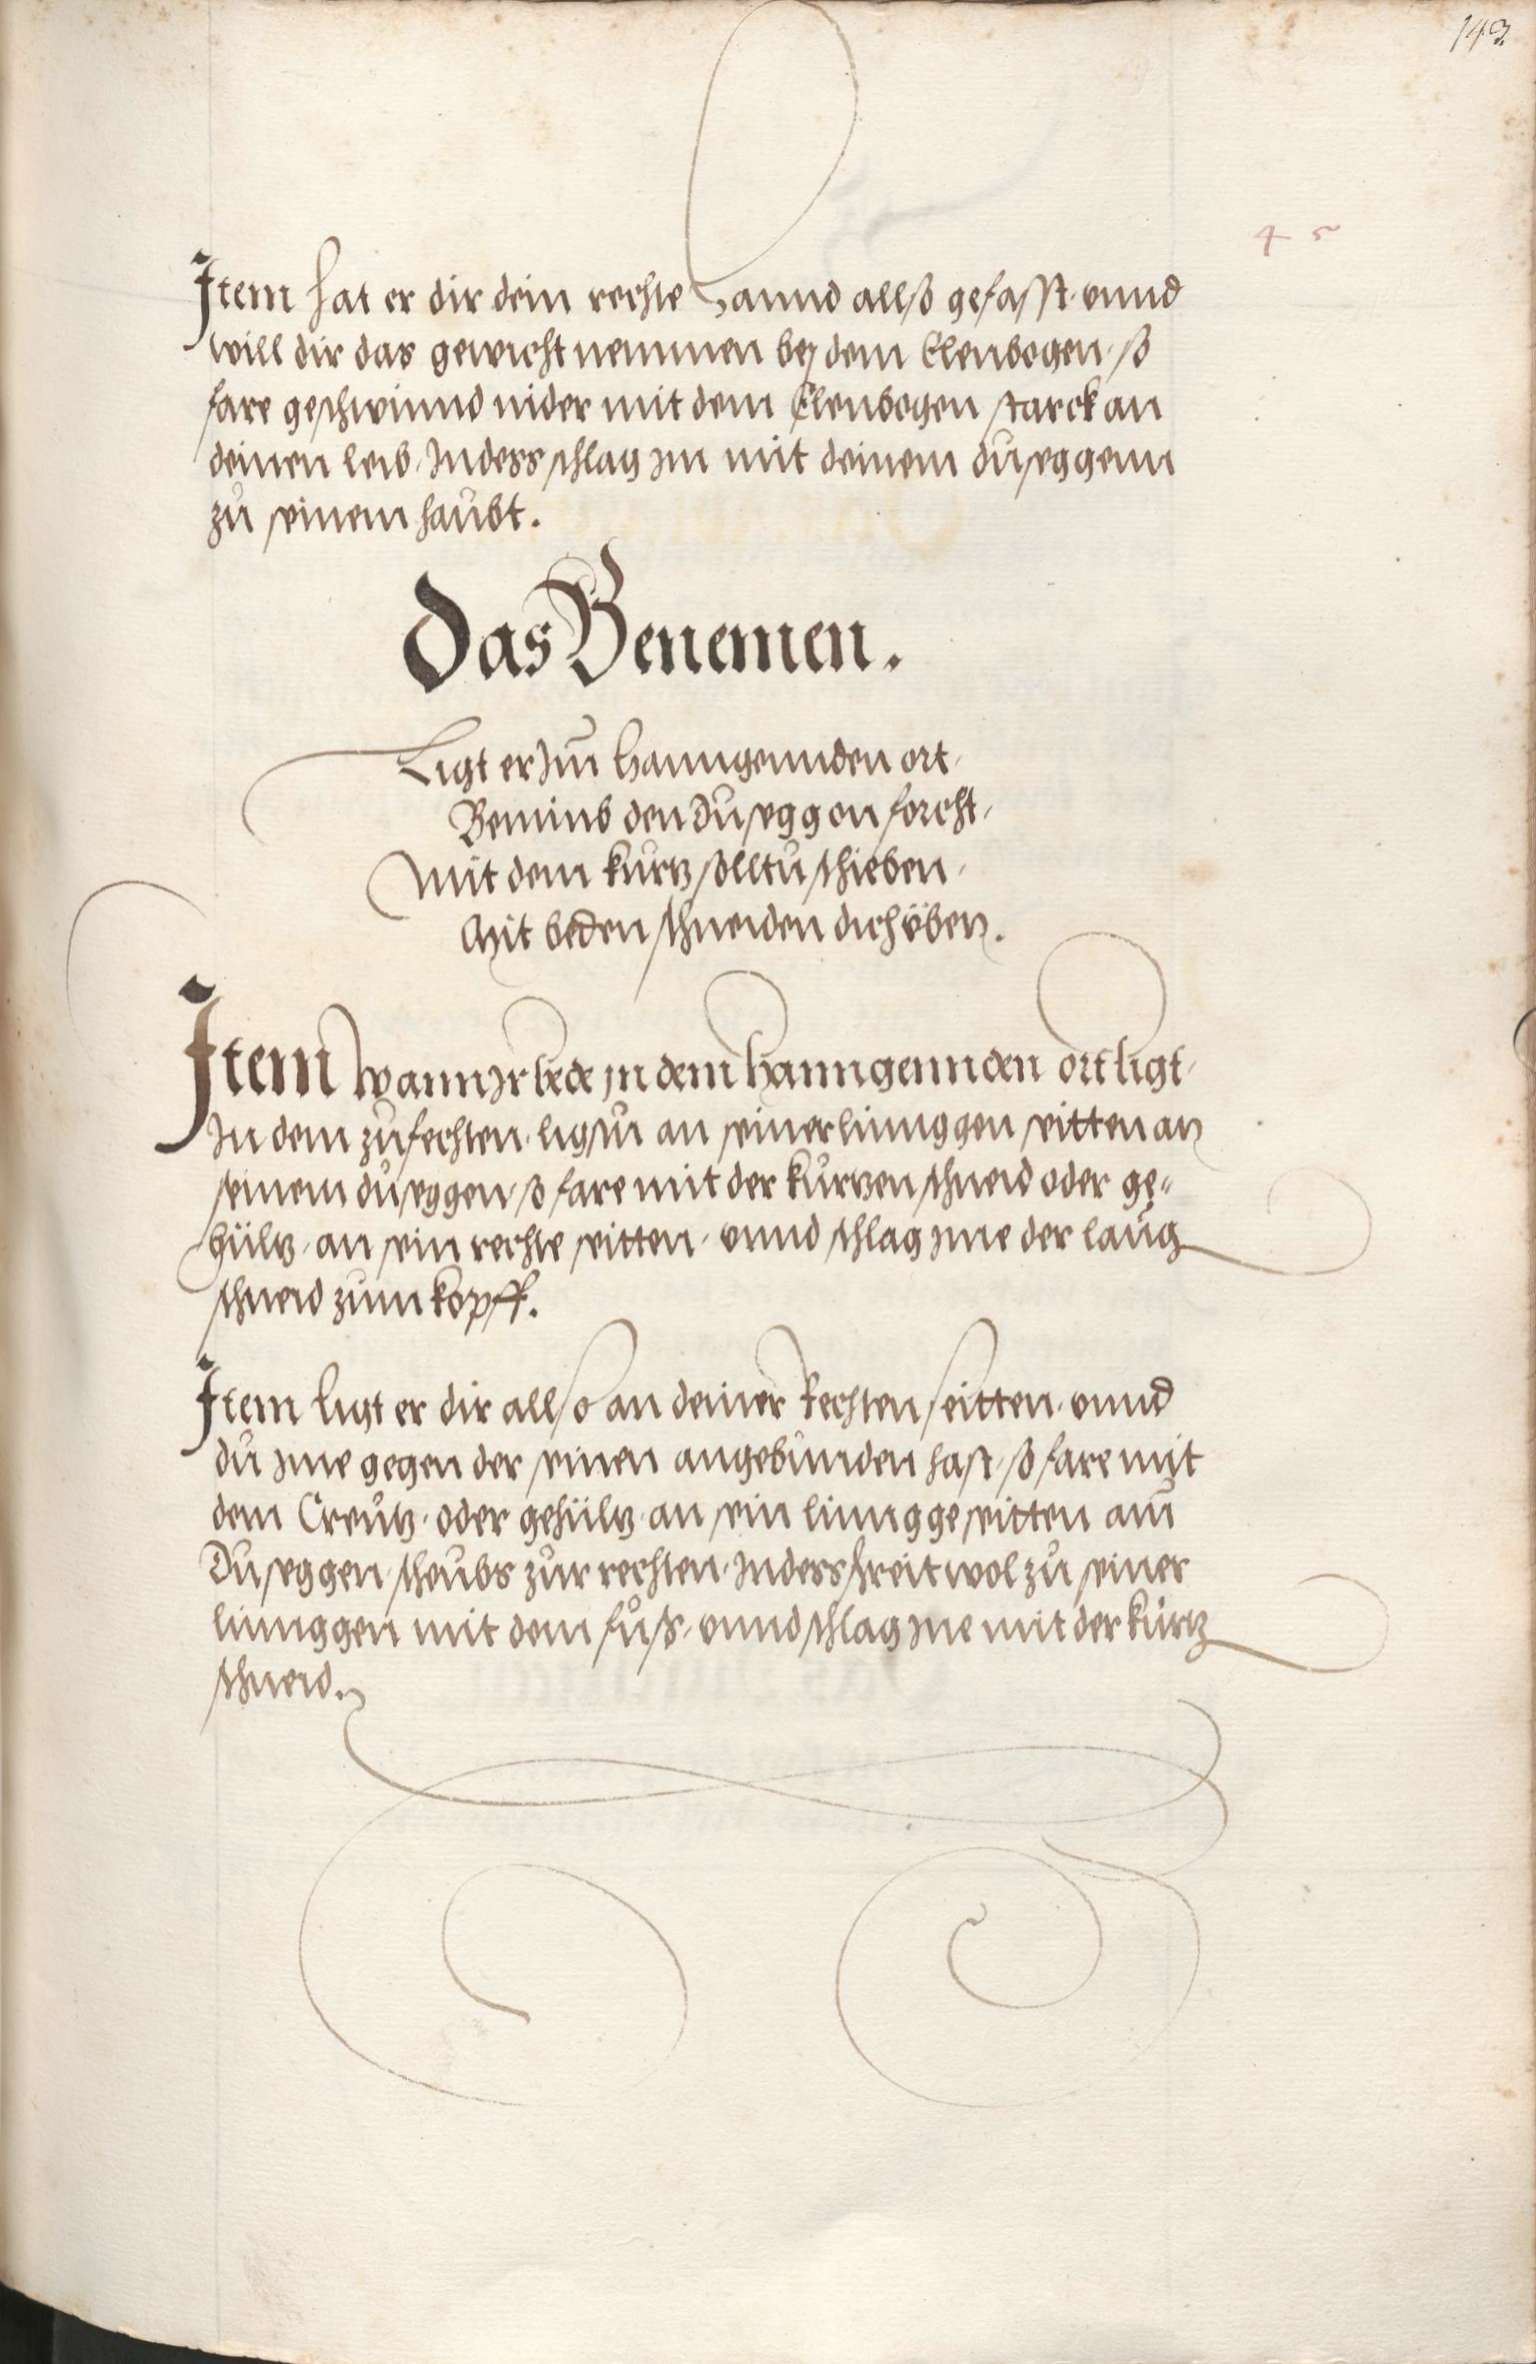 143
4 5
Item hat er dir dein rechte Hannd allso gefasst, vnnd
will dir das gewicht nemmen bej dem Elenbogen, so
fare geschwinnd nider mit dem Elenbogen starck an
deinen leib, Indess schlag im mit deinem duseggenn
zu seinem haubt.
Das Benemen.
Ligt er Im Hanngennden ort,
Benimb den Duseggen forcht,
Mit dem kurtz solltu schieben,
Mit beden schneiden dich üben.
Item wann Ir bede in dem Hanngennden ort ligt,
In dem zufechten, ligstu an seiner linnggen seitten an
seinem duseggen, so fare mit der kurtzen schneid oder ge„
hültz, an sein rechte seitten, vnnd schlag ime der lang
schneid zum kopff.
Item ligt er dir allso an deiner Rechten seitten, vnnd
du ime gegen der seinen angebunden hast, so fare mit
dem Creutz, oder gehültz, an sein linngge seitten am
Duseggen, scheubs zur rechten, Indess schreit wol zu seiner
linnggen mit dem fuß, vnnd schlag ine mit der kurtz
schneid.